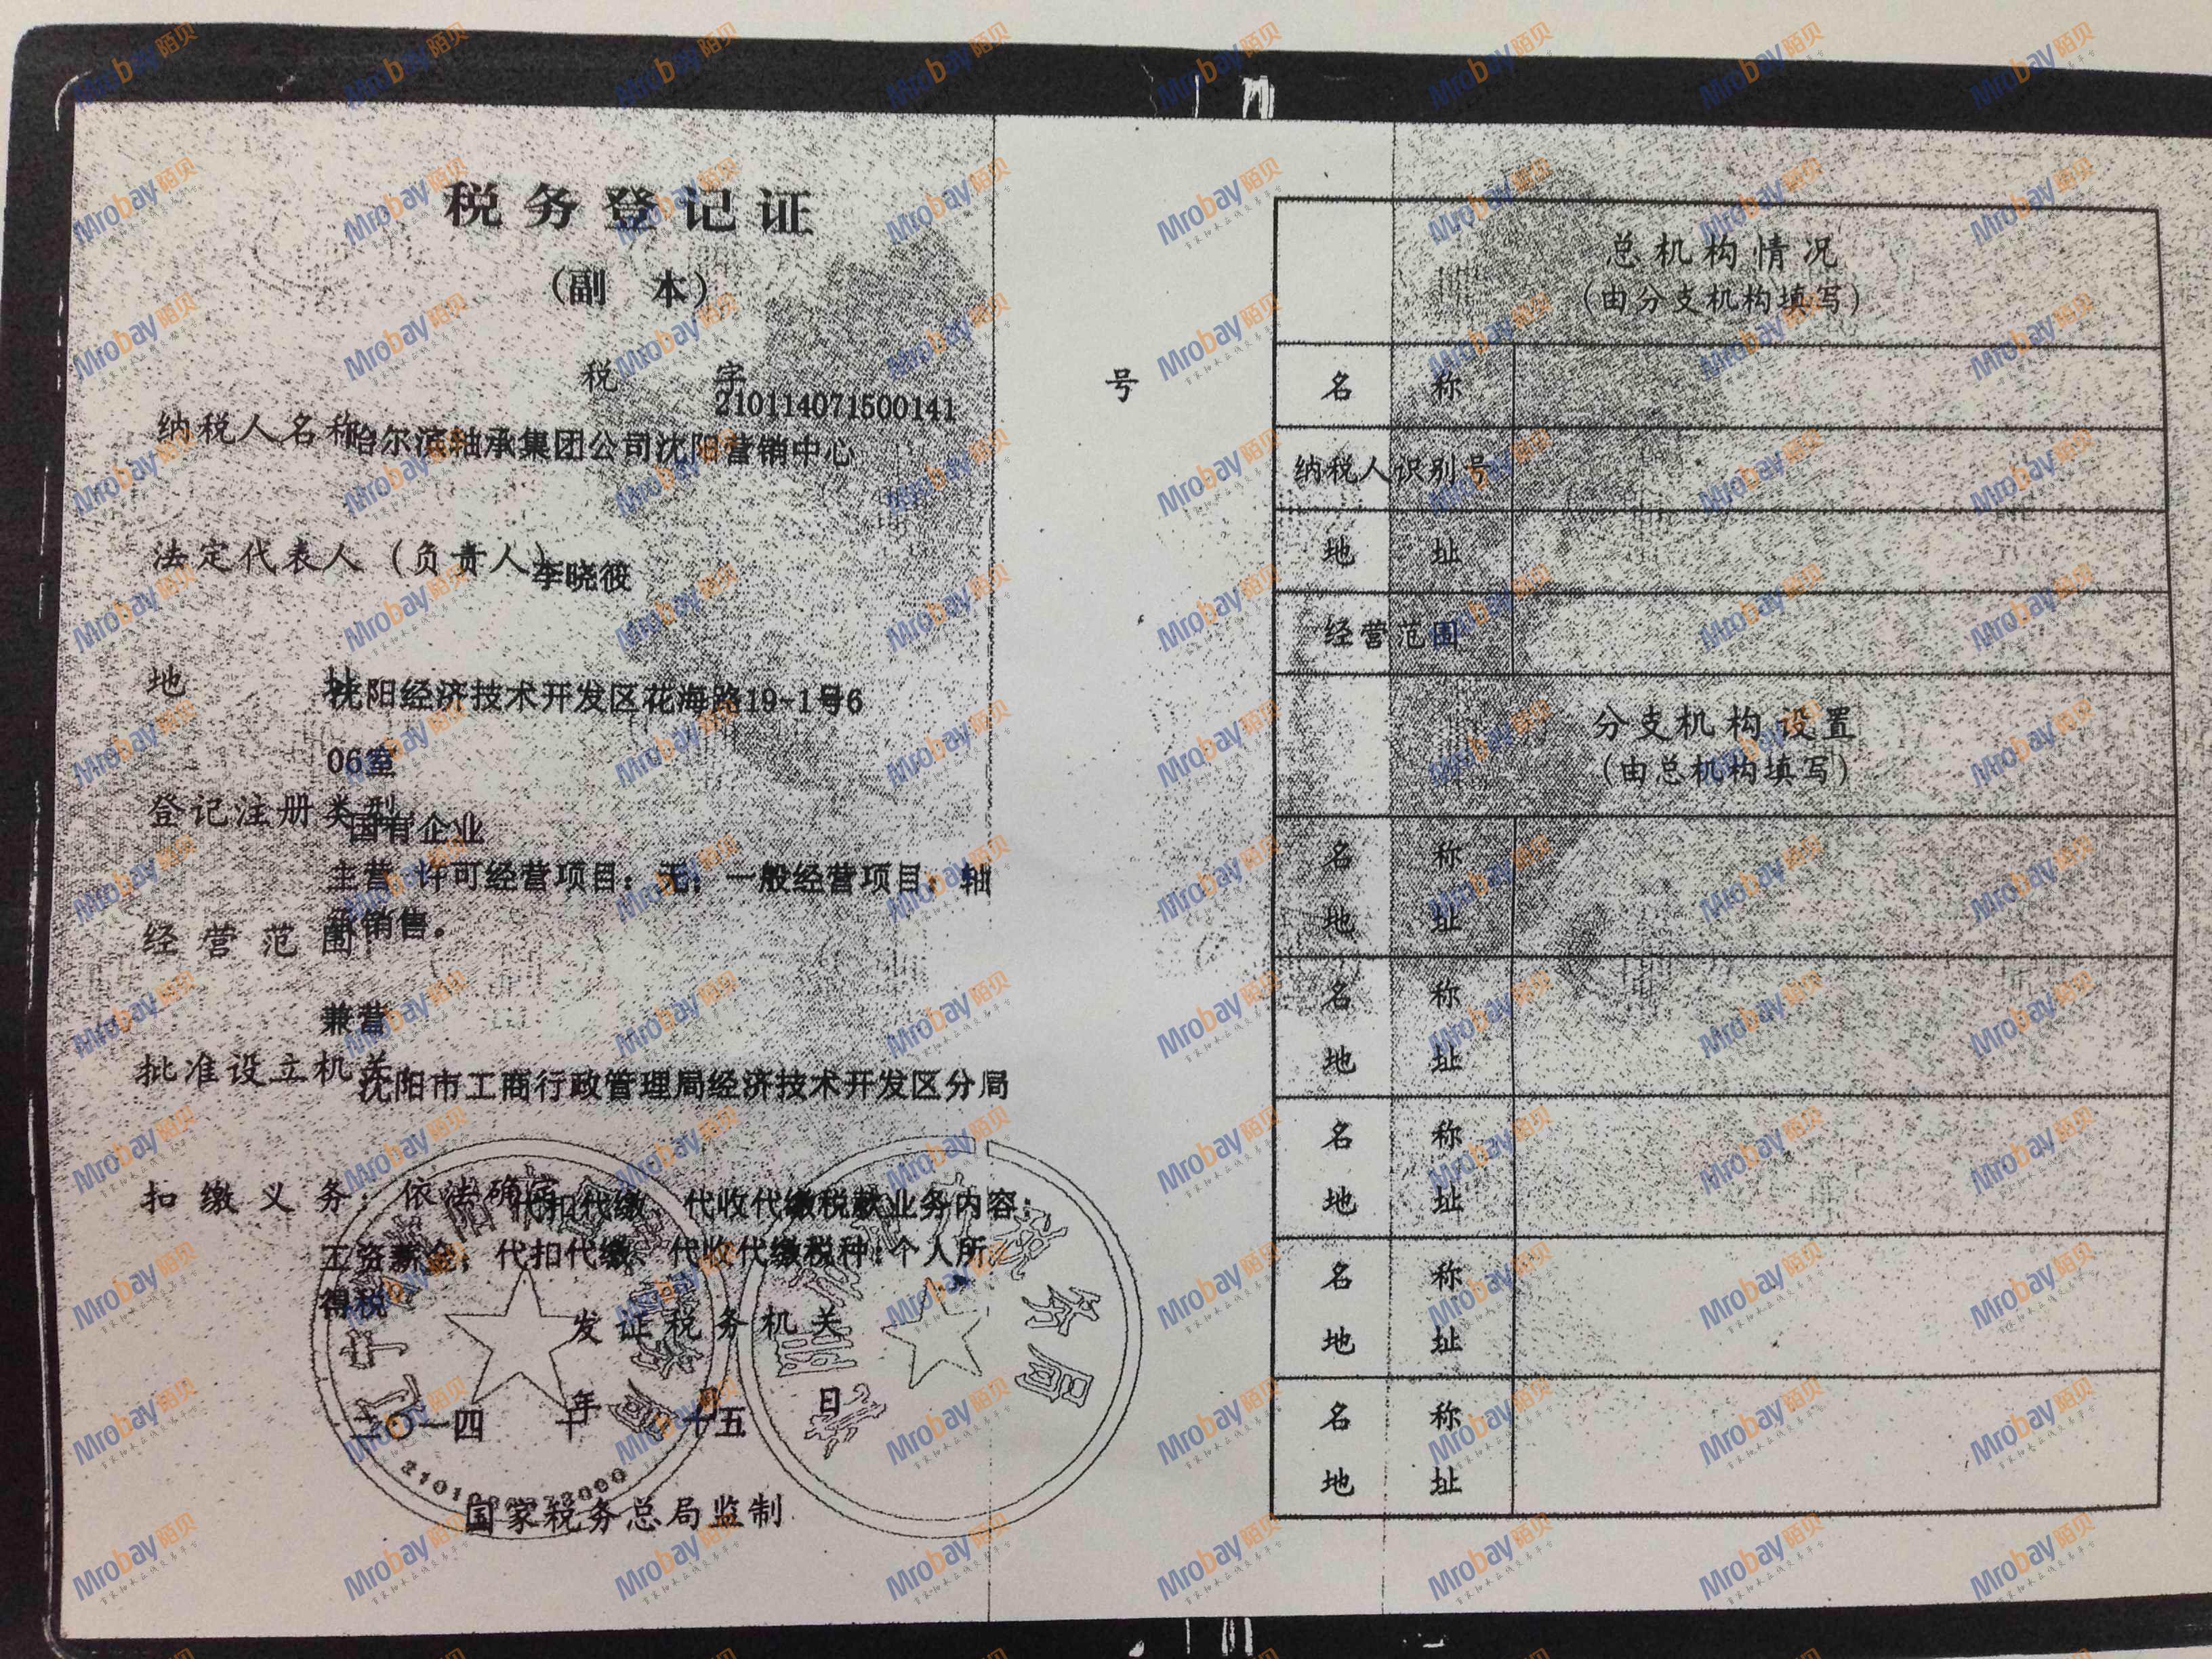 税务登记证
(副 本)
税 字 号
210114071500141
纳税人名称 哈尔滨轴承集团公司沈阳营销中心
法定代表人(负责人) 李晓
地 址 沈阳经济技术开发区花海路19-1号6
06室
登记注册类型 国有企业
主营 许可经营项目:无;一般经营项目:轴
经营范围 承销售。
兼营
批准设立机关 沈阳市工商行政管理局经济技术开发区分局
扣缴义务:依法确定 代扣代缴、代收代缴税款业务内容:
工资薪金;代扣代缴、代收代缴税种:个人所
得税
发证税务机关
二〇一四 年 十 月 十五 日
国家税务总局监制
总机构情况
(由分支机构填写)
名 称
纳税人识别号
地 址
经营范围
分支机构设置
(由总机构填写)
名 称
地 址
名 称
地 址
名 称
地 址
名 称
地 址
名 称
地 址
Mrobay陌贝